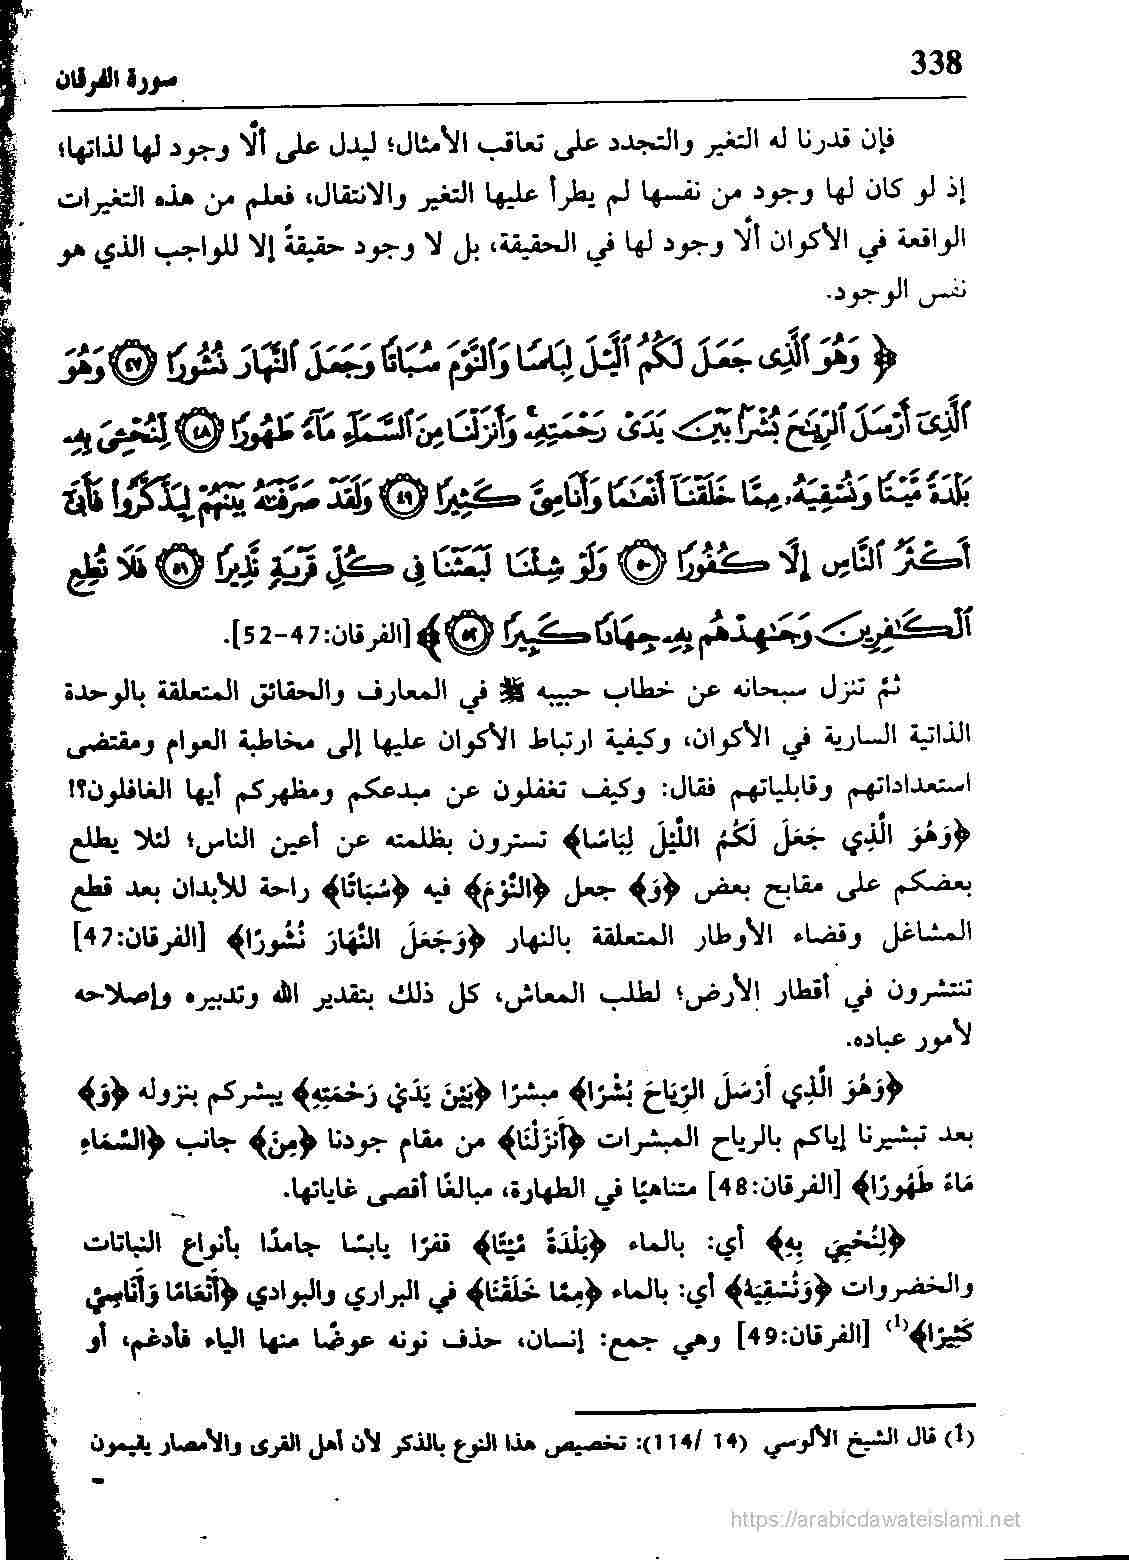 338
سورة الفرقان
فإن قدرنا له التغير والتجدد على تعاقب الأمثال؛ ليدل على ألّا وجود لها لذاتها؛
إذ لو كان لها وجود من نفسها لم يطرأ عليها التغير والانتقال، فعلم من هذه التغيرات
الواقعة في الأكوان ألّا وجود لها في الحقيقة، بل لا وجود حقيقةً إلا للواجب الذي هو
نفس الوجود.
﴿ وَهُوَ ٱلَّذِى جَعَلَ لَكُمُ ٱلَّيْلَ لِبَاسًا وَٱلنَّوْمَ سُبَاتًا وَجَعَلَ ٱلنَّهَارَ نُشُورًا ﴿٤٧﴾ وَهُوَ
ٱلَّذِىٓ أَرْسَلَ ٱلرِّيَٰحَ بُشْرًۢا بَيْنَ يَدَىْ رَحْمَتِهِۦ ۚ وَأَنزَلْنَا مِنَ ٱلسَّمَآءِ مَآءً طَهُورًا ﴿٤٨﴾ لِّنُحْـِۧىَ بِهِۦ
بَلْدَةً مَّيْتًا وَنُسْقِيَهُۥ مِمَّا خَلَقْنَآ أَنْعَٰمًا وَأَنَاسِىَّ كَثِيرًا ﴿٤٩﴾ وَلَقَدْ صَرَّفْنَٰهُ بَيْنَهُمْ لِيَذَّكَّرُوا۟ فَأَبَىٰٓ
أَكْثَرُ ٱلنَّاسِ إِلَّا كُفُورًا ﴿٥٠﴾ وَلَوْ شِئْنَا لَبَعَثْنَا فِى كُلِّ قَرْيَةٍ نَّذِيرًا ﴿٥١﴾ فَلَا تُطِعِ
ٱلْكَٰفِرِينَ وَجَٰهِدْهُم بِهِۦ جِهَادًا كَبِيرًا ﴿٥٢﴾ ﴾ [الفرقان:47-52].
ثمَّ تنزل سبحانه عن خطاب حبيبه ﷺ في المعارف والحقائق المتعلقة بالوحدة
الذاتية السارية في الأكوان، وكيفية ارتباط الأكوان عليها إلى مخاطبة العوام ومقتضى
استعداداتهم وقابلياتهم فقال: وكيف تغفلون عن مبدعكم ومظهركم أيها الغافلون؟!
﴿وَهُوَ الَّذِي جَعَلَ لَكُمُ اللَّيْلَ لِبَاسًا﴾ تسترون بظلمته عن أعين الناس؛ لئلا يطلع
بعضكم على مقابح بعض ﴿وَ﴾ جعل ﴿النَّوْمَ﴾ فيه ﴿سُبَاتًا﴾ راحة للأبدان بعد قطع
المشاغل وقضاء الأوطار المتعلقة بالنهار ﴿وَجَعَلَ النَّهَارَ نُشُورًا﴾ [الفرقان:47]
تنتشرون في أقطار الأرض؛ لطلب المعاش، كل ذلك بتقدير الله وتدبيره وإصلاحه
لأمور عباده.
﴿وَهُوَ الَّذِي أَرْسَلَ الرِّيَاحَ بُشْرًا﴾ مبشرًا ﴿بَيْنَ يَدَيْ رَحْمَتِهِ﴾ يبشركم بنزوله ﴿وَ﴾
بعد تبشيرنا إياكم بالرياح المبشرات ﴿أَنزَلْنَا﴾ من مقام جودنا ﴿مِنَ﴾ جانب ﴿السَّمَاءِ
مَاءً طَهُورًا﴾ [الفرقان:48] متناهيًا في الطهارة، مبالغًا أقصى غاياتها.
﴿لِنُحْيِيَ بِهِ﴾ أي: بالماء ﴿بَلْدَةً مَّيْتًا﴾ قفرًا يابسًا جامدًا بأنواع النباتات
والخضروات ﴿وَنُسْقِيَهُ﴾ أي: بالماء ﴿مِمَّا خَلَقْنَا﴾ في البراري والبوادي ﴿أَنْعَامًا وَأَنَاسِيَّ
كَثِيرًا﴾(1) [الفرقان:49] وهي جمع: إنسان، حذف نونه عوضًا منها الياء فأدغم، أو
(1) قال الشيخ الألوسي (14 /114): تخصيص هذا النوع بالذكر لأن أهل القرى والأمصار يقيمون
https://arabicdawateislami.net